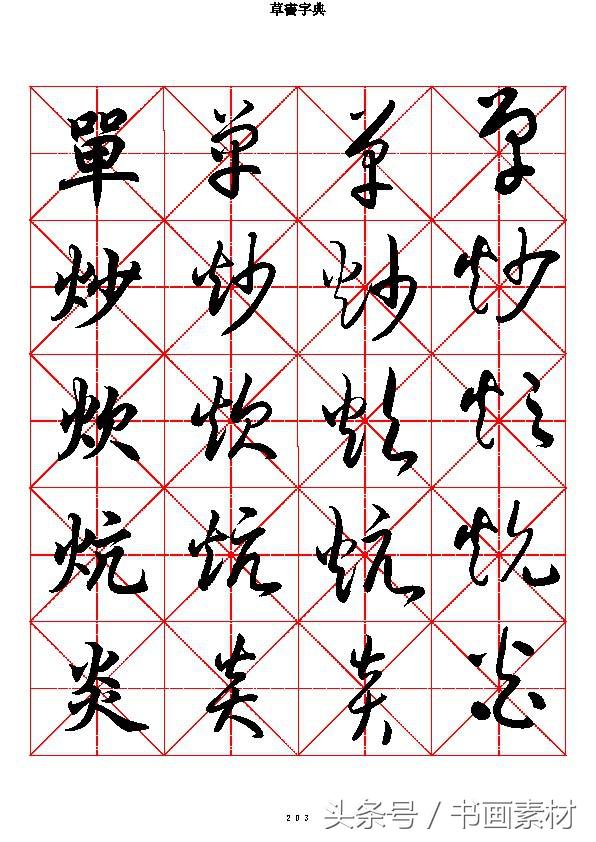 草書字典
單 单 单 单
炒 炒 炒 炒
炊 炊 炊 炊
炕 炕 炕 炕
炎 炎 炎 炎
203
头条号 / 书画素材